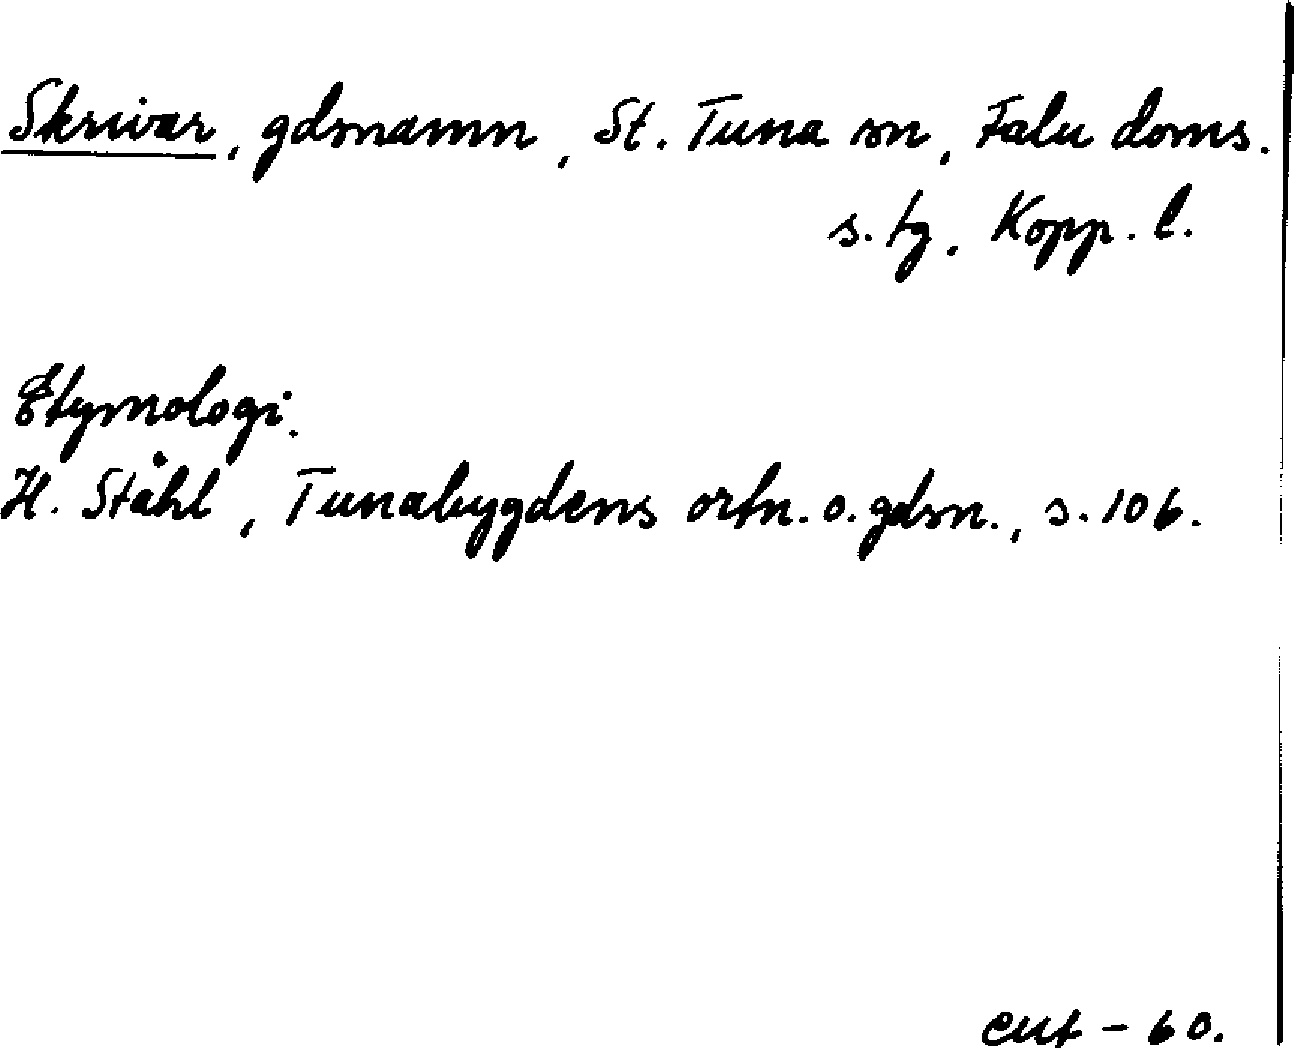 Skrivar, gdsnamn, St. Tuna sn, Falu doms.
s. tg, Kopp. l.
Etymologi.
H. Ståhl, Tunabygdens ortn. o. gdsn., s. 106.
- 60.